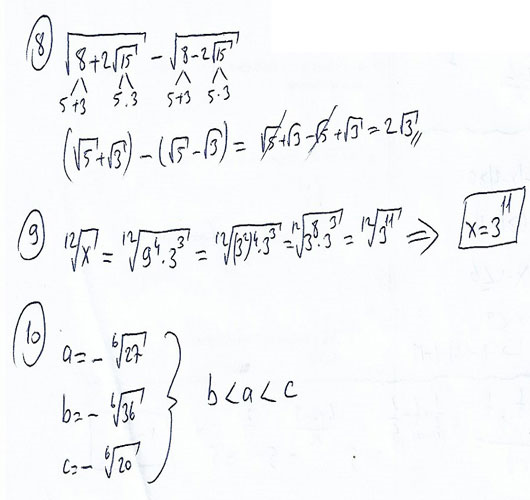 8 √(8+2√15) − √(8−2√15)
5+3 5.3 5+3 5.3
(√5+√3) − (√5−√3) = √5+√3−√5+√3 = 2√3//
9 ¹²√x = ¹²√(9⁴.3³) = ¹²√((3²)⁴.3³) = ¹²√(3⁸.3³) = ¹²√(3¹¹) ⇒ x=3¹¹
10
a=−⁶√27
b=−⁶√36 b<a<c
c=−⁶√20